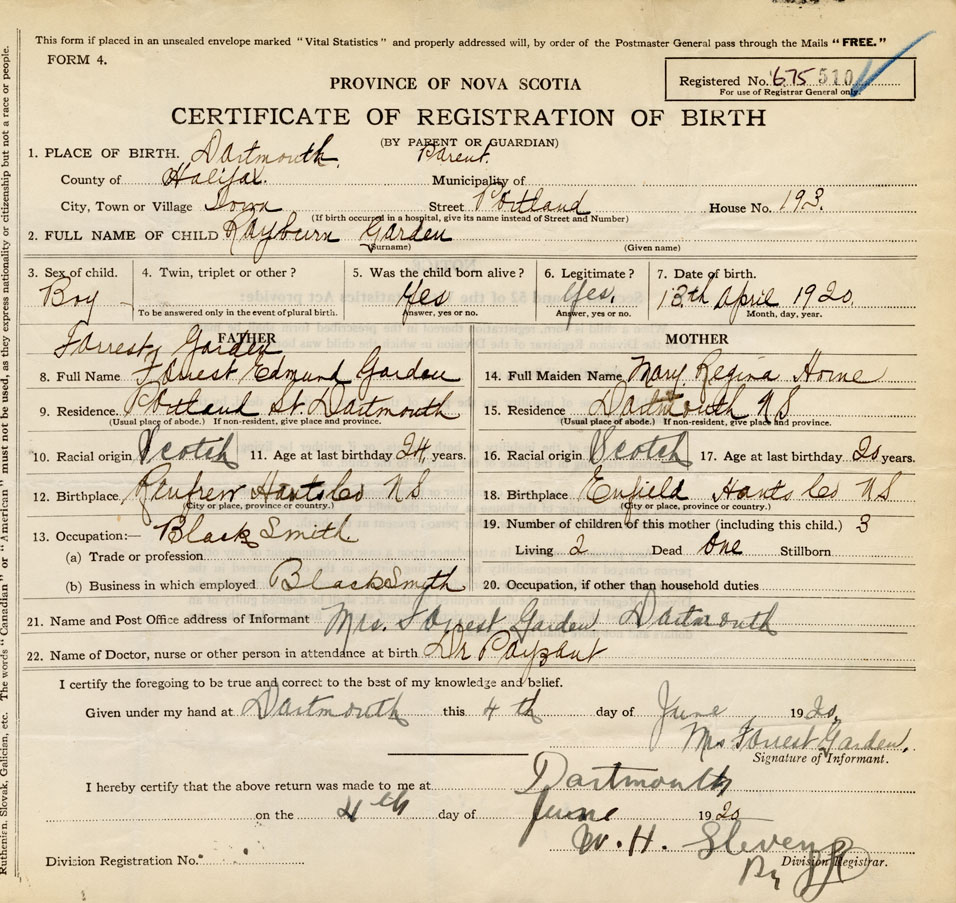 This form if placed in an unsealed envelope marked "Vital Statistics" and properly addressed will, by order of the Postmaster General pass through the Mails "FREE."
FORM 4.
Registered No. 675 510
For use of Registrar General only.
PROVINCE OF NOVA SCOTIA
CERTIFICATE OF REGISTRATION OF BIRTH
(BY PARENT OR GUARDIAN)
1. PLACE OF BIRTH. Dartmouth. Parent.
County of Halifax. Municipality of
City, Town or Village Town Street Portland House No. 193.
(If birth occurred in a hospital, give its name instead of Street and Number)
2. FULL NAME OF CHILD Rayburn Garden
(Surname) (Given name)
3. Sex of child. 4. Twin, triplet or other? 5. Was the child born alive? 6. Legitimate? 7. Date of birth.
Boy Yes Yes. 13th April 1920.
To be answered only in the event of plural birth. Answer, yes or no. Answer, yes or no. Month, day, year.
FATHER MOTHER
Forrest Garden
8. Full Name Forrest Edmund Garden
9. Residence. Portland St. Dartmouth
(Usual place of abode.) If non-resident, give place and province.
10. Racial origin Scotch 11. Age at last birthday 24 years.
12. Birthplace. Renfrew Hants Co N S
(City or place, province or country.)
13. Occupation:— Black Smith
(a) Trade or profession
(b) Business in which employed BlackSmyth
14. Full Maiden Name Mary Regina Horne
15. Residence Dartmouth N S
(Usual place of abode.) If non-resident, give place and province.
16. Racial origin Scotch 17. Age at last birthday 20 years.
18. Birthplace Enfield Hants Co N S
(City or place, province or country.)
19. Number of children of this mother (including this child.) 3
Living 2 Dead One Stillborn
20. Occupation, if other than household duties
21. Name and Post Office address of Informant Mrs. Forrest Garden Dartmouth
22. Name of Doctor, nurse or other person in attendance at birth Dr Payzant
I certify the foregoing to be true and correct to the best of my knowledge and belief.
Given under my hand at Dartmouth this 4th day of June 1920.
Mrs Forrest Garden.
Signature of Informant.
I hereby certify that the above return was made to me at Dartmouth
on the 4th day of June 1920
W. H. Stevens
Division Registrar.
Division Registration No.
Ruthenian, Slovak, Galician, etc. The words "Canadian" or "American" must not be used, as they express nationality or citizenship but not a race or people.